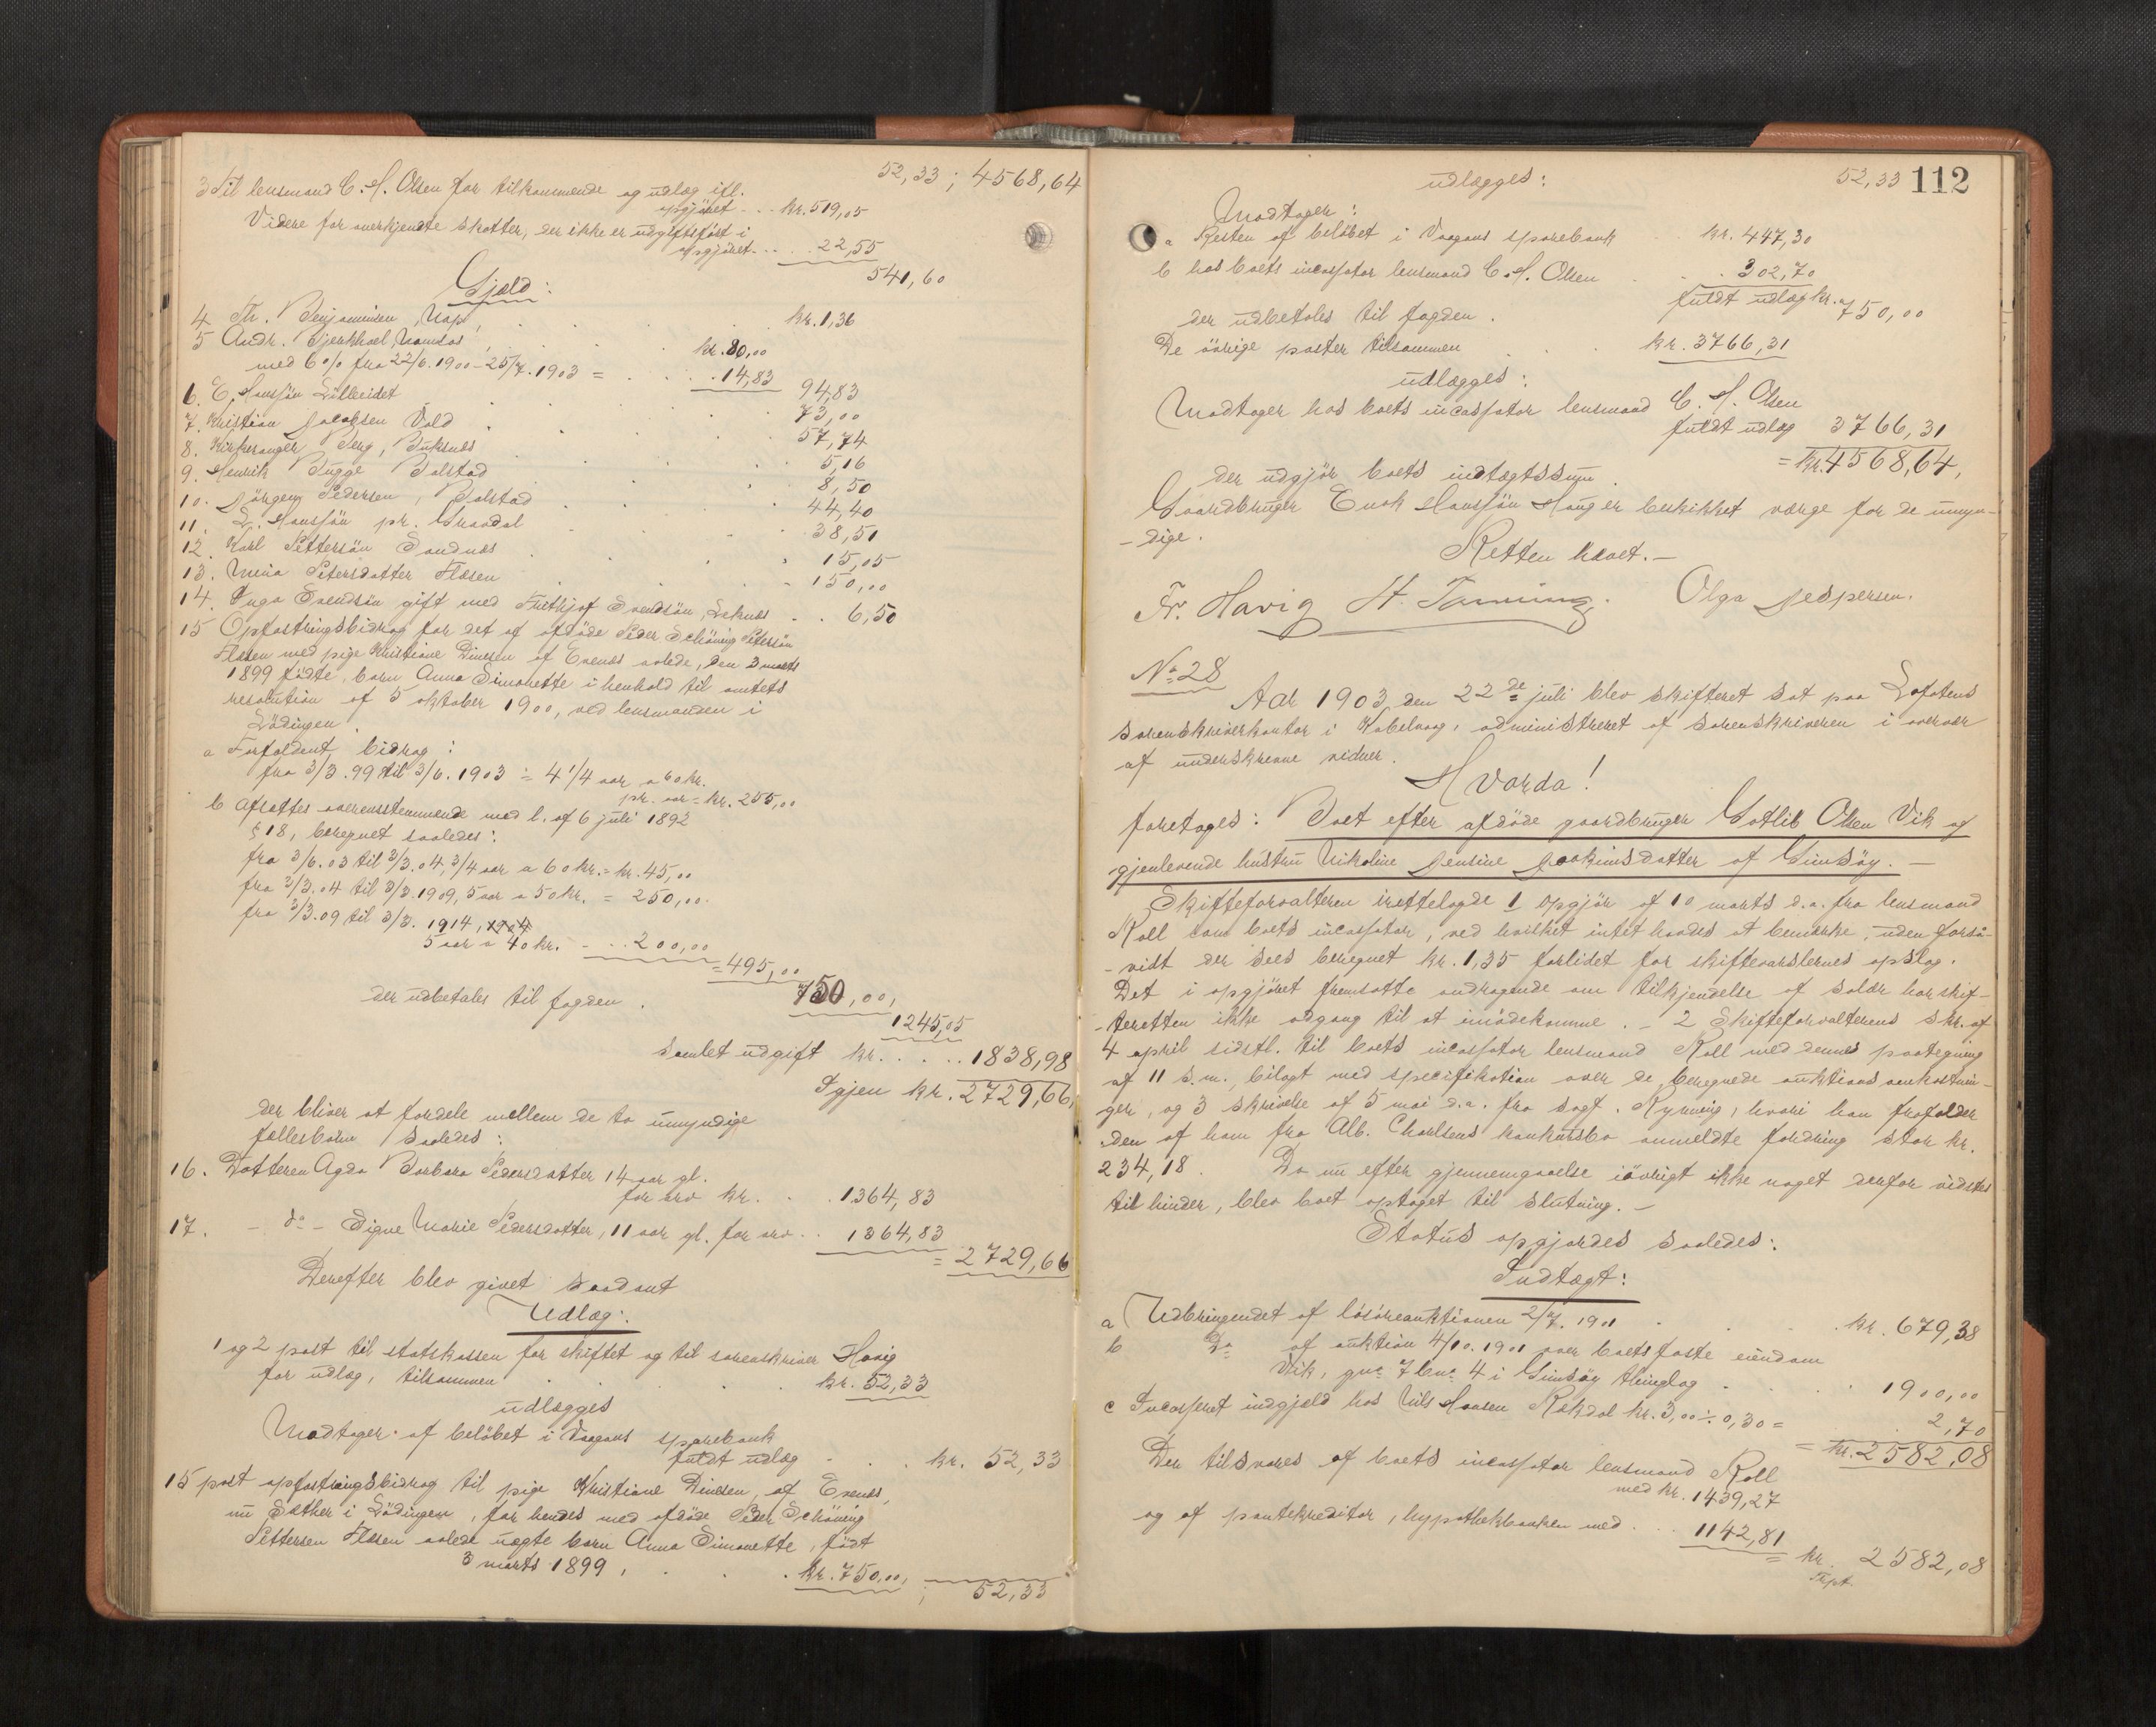 52,33; 4568,64
3 Til lensmand C. H. Olsen for tilkommende og udlæg ifl.
opgjöret . . . kr. 519,05
Videre for anerkjendte skatter, der ikke er udgiftsfört i
opgjöret . . . . 22,55
541,60
Gjæld:
4 Th. Benjaminsen, Nap . . . kr. 1,36
5 Andr. Bjerkhoel, Namsos, . . . kr. 80,00
med 6 % fra 22/6. 1900 - 25/7. 1903 = . . . 14,83
94,83
6. E. Hansjön Lilleeidet . . . 73,00
7. Kristian Jacobsen Vold . . . 57,74
8. Kirkesanger Berg, Buksnes . . . 5,16
9. Henrik Bugge Balstad . . . 8,50
10. Jörgen Pedersen, Balstad . . . 44,40
11. L. Hansjön pr. Gravdal . . . 38,51
12. Karl Pettersön Sandnes . . . 15,05
13. Mina Petersdatter Flæsen . . . 150,00
14. Inga Svendsön gift med Frithjof Svendsön, Leknes . . . 6,50
15 Opfostringsbidrag for det af afdöde Peder Schöning Petersön
Flæsen med pige Kristiane Dinesen af Evenes avlede, den 3 marts
1899 födte, barn Anna Simonette i henhold til amtets
resolution af 5 oktober 1900, ved lensmanden i
Lödingen.
a Forfaldent bidrag:
fra 3/3. 99 til 3/6. 1903 = 4 1/4 aar a 60 kr.
pr. aar = kr. 255,00
b Afsættes overensstemmende med l. af 6 juli 1892
§ 18, beregnet saaledes:
fra 3/6. 03 til 3/3. 04, 3/4 aar a 60 kr. = kr. 45,00
fra 3/3. 04 til 3/3. 1909, 5 aar a 50 kr. = 250,00.
fra 3/3. 09 til 3/3. 1914, 1904
5 aar a 40 kr. - . . 200,00
= 495,00
der udbetales til fogden . 750,00,
1245,05
Samlet udgift kr. . . . . 1838,98
Igjen kr. 2729,66,
der bliver at fordele mellem de to umyndige
fællesbörn saaledes:
16. Datteren Agda Barbara Pedersdatter 14 aar gl.
for arv kr. . . . 1364,83
17. - do - Signe Marie Pedersdatter, 11 aar gl. for arv . . 1364,83
= 2729,66
Derefter blev givet saadant
Udlæg:
1 og 2 post til statskassen for skiftet og til sorenskriver Havig
for udlæg, tilsammen . . . kr. 52,33
udlægges
Modtager af belöbet i Vaagans sparebank
fuldt udlæg . . . kr. 52,33
15 post opfostringsbidrag til pige Kristiane Dinesen, af Evenes,
nu Sæther i Lödingen, for hendes med afdöde Peder Schöning
Pettersen Flæsen avlede uægte barn Anna Simonette, födt
3 marts 1899, . . . kr. 750,00,
; 52,33
52,33 112
udlægges:
Modtager:
a Resten af belöbet i Vaagans sparebank kr. 447,30
b hos boets incassator lensmand C. H. Olsen . . 302,70
fuldt udlæg kr. 750,00
der udbetales til fogden.
De övrige poster tilsammen . . . kr. 3766,31
udlægges:
Modtager hos boets incassator lensmand C. H. Olsen
fuldt udlæg 3766,31
= kr. 4568,64,
der udgjör boets indtægtssum.
Gaardbruger Enok Hansjön Haug er beskikket værge for de umyn-
-dige.
Retten hævet. —
Fr. Havig H. Tanning. Olga Jespersen.
No 28
Aar 1903 den 22de juli blev skifteret sat paa Lofotens
sorenskriverkontor i Kabelvaag, administreret af sorenskriveren i overvær
af underskrevne vidner.
Hvorda!
foretoges: Boet efter afdöde gaardbruger Gotlib Olsen Vik og
gjenlevende hustru Nikoline Jensine Joakimsdatter af Gimsöy. —
Skifteforvalteren irettelagde 1 opgjör af 10 marts d.a. fra lensmand
Roll som boets incassator, ved hvilket intet havdes at bemærke, uden forsaa-
-vidt der sees beregnet kr. 1,35 forlidet for skiftevarslernes opslag.
Det i opgjöret fremsatte andragende om tilkjendelse af salær har skif-
-teretten ikke adgang til at imödekomme. - 2 Skifteforvalterens skr. af
4 april sidstl. til boets incassator lensmand Roll med dennes paategning
af 11 s.m., bilagt med specifikation over de beregnede auktionsomkostnin-
ger, og 3 skrivelse af 5 mai d.a. fra sagf. Rynning, hvori han frafalder
den af ham fra Alb. Charlsens konkursbo anmeldte fordring stor kr.
234,18. Da nu efter gjennemgaaelse iövrigt ikke noget derfor vidstes
til hinder, blev boet optaget til slutning. —
Status opgjordes saaledes:
Indtægt:
a Udbringendet af lösöreauktionen 2/7. 1901 . . . kr. 679,38
b Do af auktion 4/10. 1901 over boets faste eiendom
Vik, gno 7 bno 4 i Gimsöy thinglag . . . 1900,00
c Incasseret indgjæld hos Nils Hansen Rekdal kr. 3,00 ÷ 0,30 = 2,70
= kr. 2582,08
Der tilsvares af boets incassator lensmand Roll
med kr. 1439,27
og af pantekreditor, hypothekbanken med . . . 1142,81
= kr. 2582,08
Trpt.